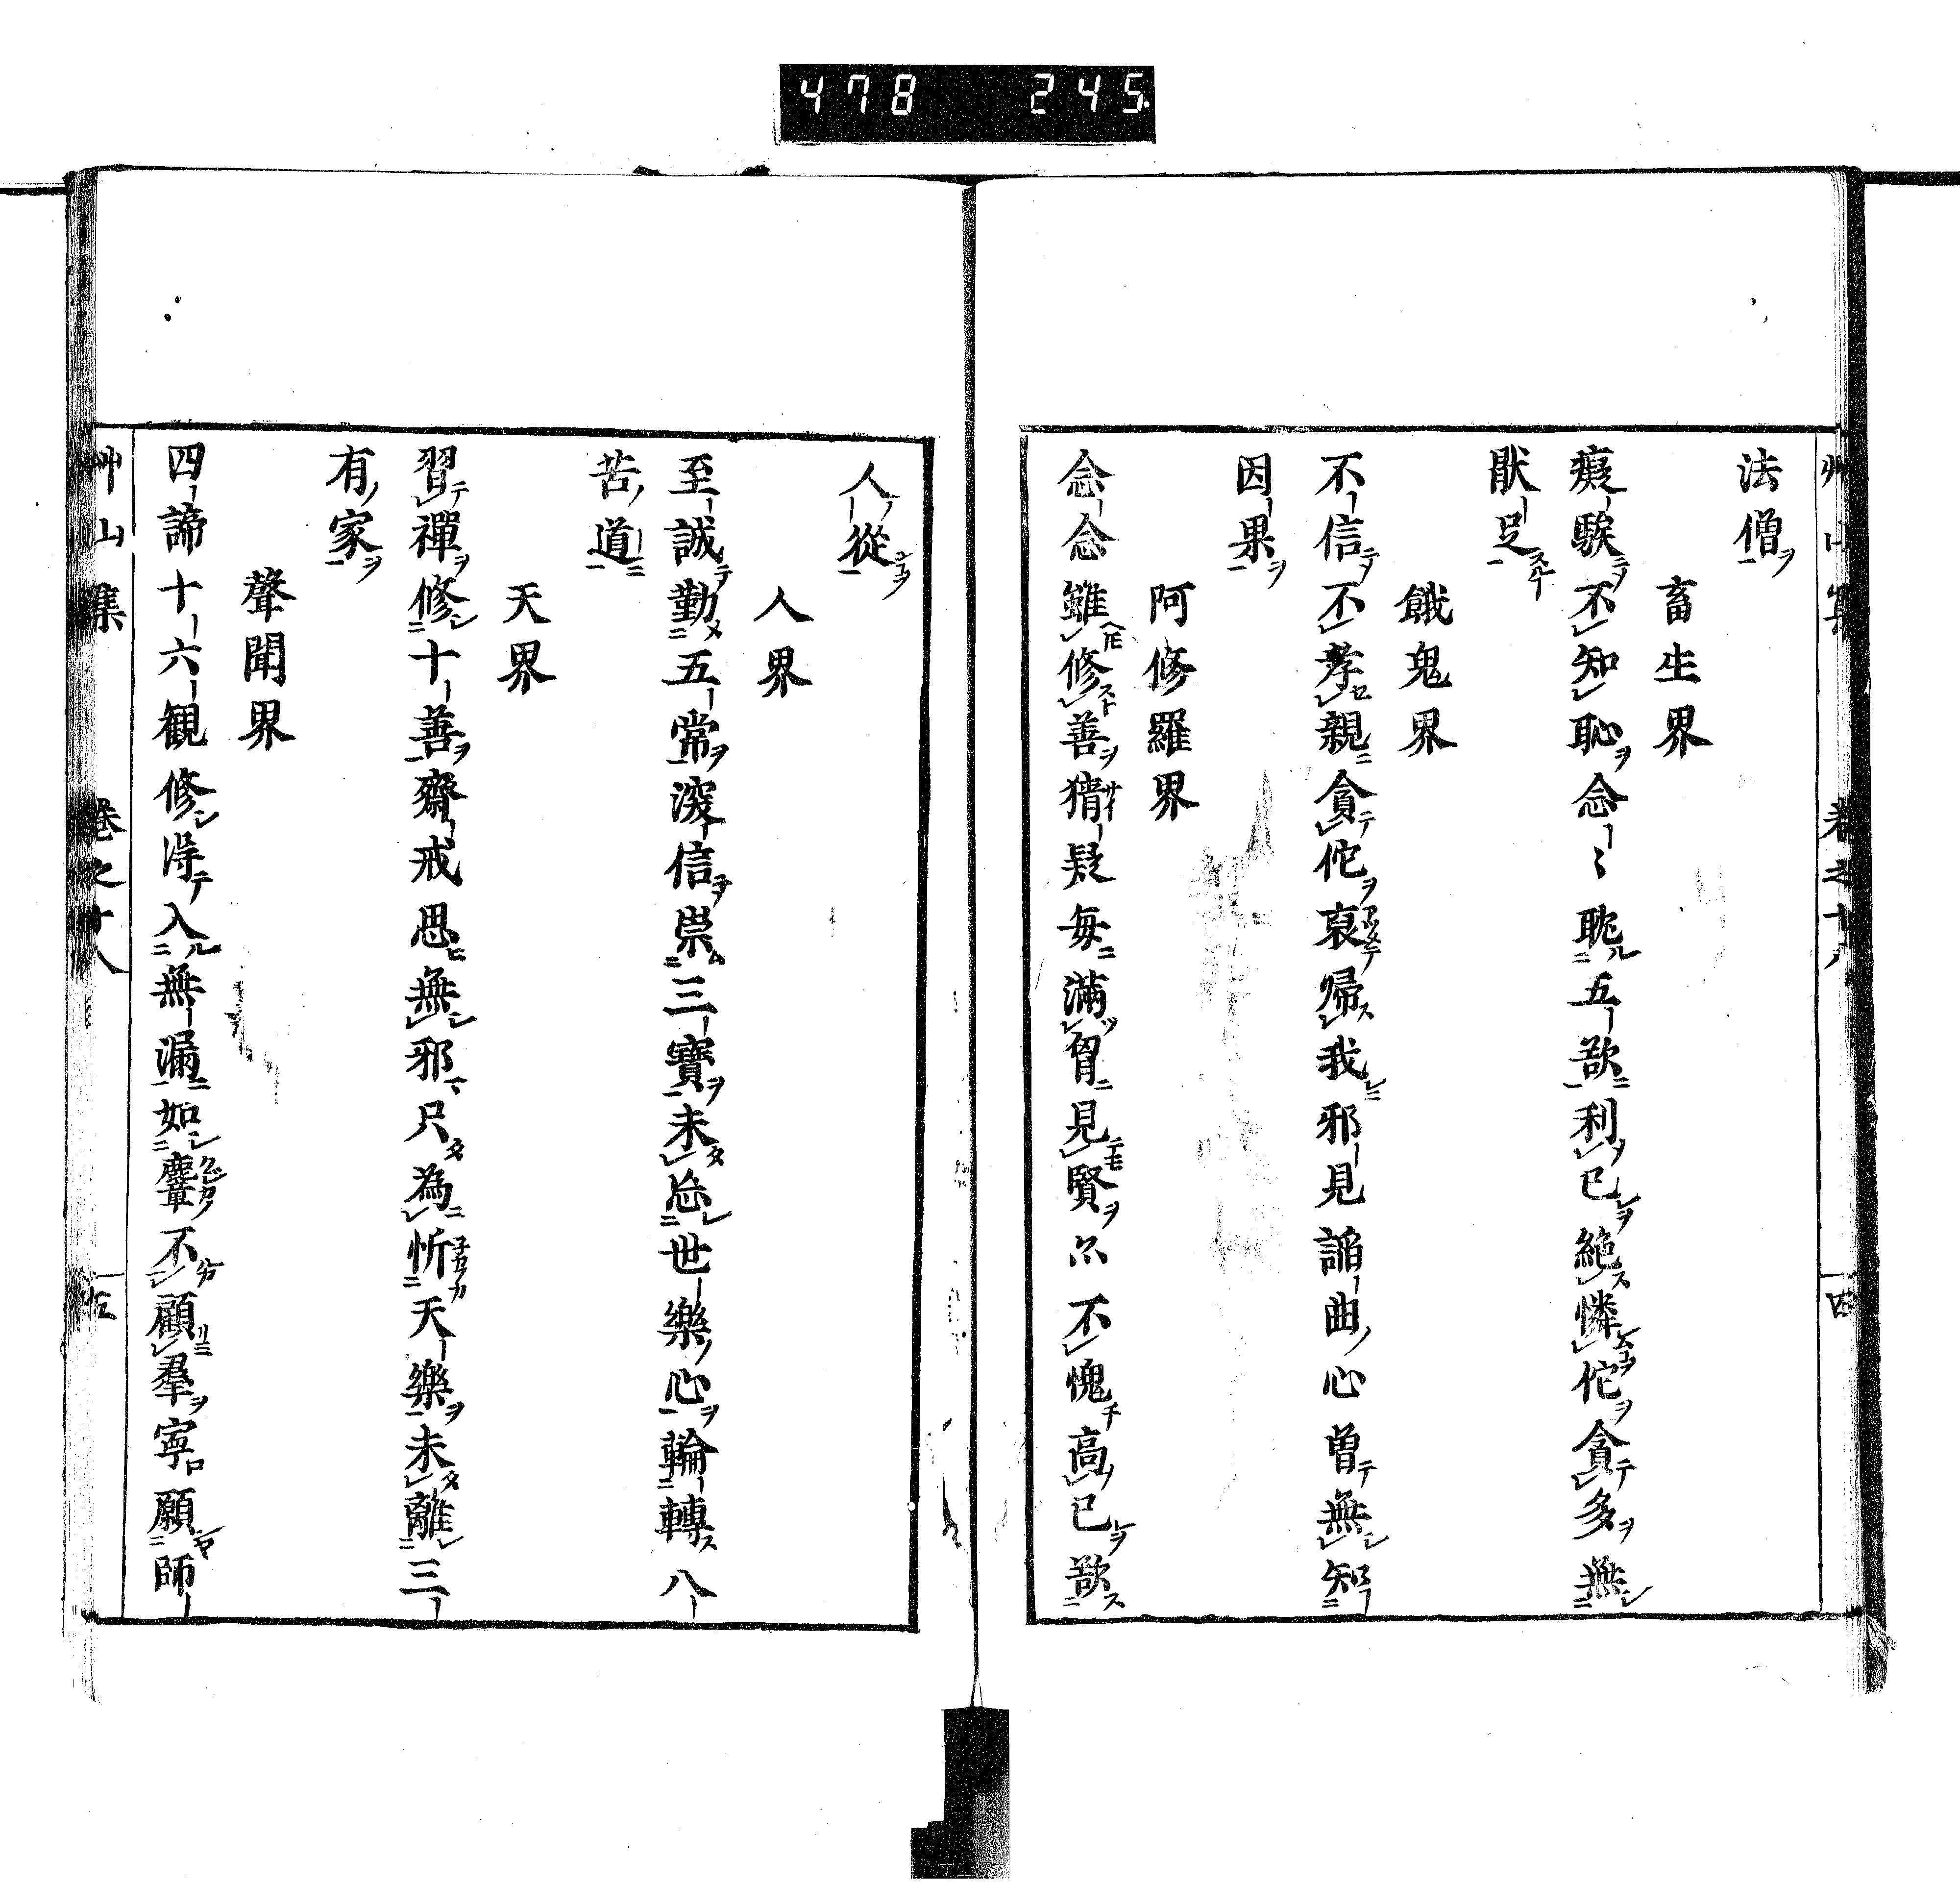 478 245
法僧
畜生界
癡騃不知恥念〻耽五欲利己絶憐佗貪多無
厭足
餓鬼界
不信不孝親貪佗哀歸我邪見諂曲心曽無知
因果
阿修羅界
念念雖修善猜疑毎滿胷見賢尒不愧高己欲
人從
人界
至誠勤五常深信崇三寶未忘世樂心輪轉八
苦道
天界
習禪修十善齋戒思無邪只為忻天樂未離三
有家
聲聞界
四諦十六観修得入無漏如麏不顧羣寧願師
艸山集 卷之十八 四
艸山集 卷之十八 五